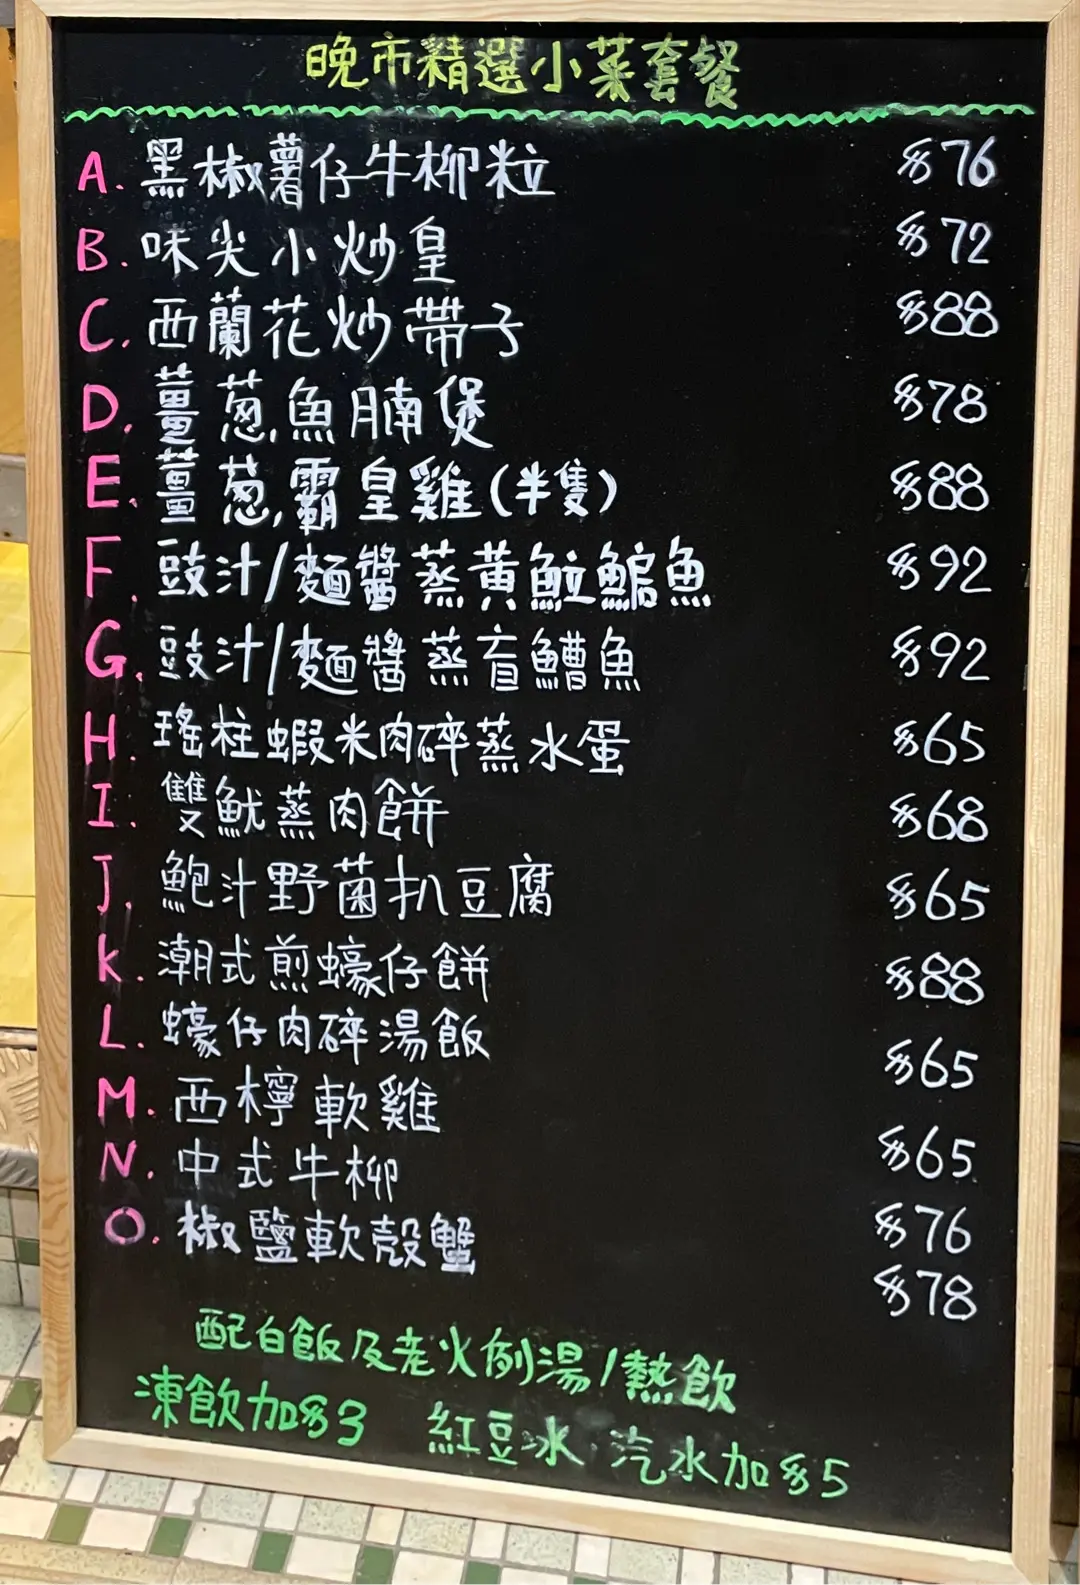 晚市精選小菜套餐
A. 黑椒薯仔牛柳粒 $76
B. 味尖小炒皇 $72
C. 西蘭花炒帶子 $88
D. 薑葱魚腩煲 $78
E. 薑葱霸皇雞(半隻) $88
F. 豉汁/麵醬蒸黃魚立鯿魚 $92
G. 豉汁/麵醬蒸盲鰽魚 $92
H. 瑤柱蝦米肉碎蒸水蛋 $65
I. 雙魷蒸肉餅 $68
J. 鮑汁野菌扒豆腐 $65
K. 潮式煎蠔仔餅 $88
L. 蠔仔肉碎湯飯 $65
M. 西檸軟雞 $65
N. 中式牛柳 $76
O. 椒鹽軟殼蟹 $78
配白飯及老火例湯/熱飲
凍飲加$3 紅豆冰.汽水加$5